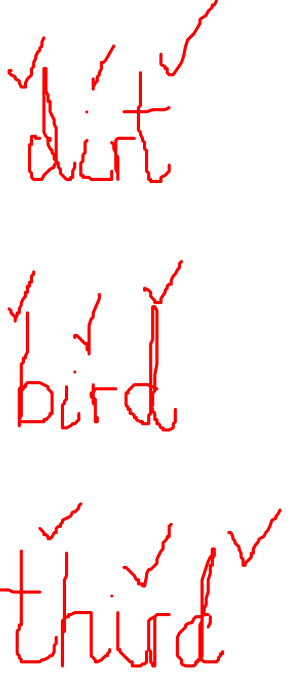 dirt
bird
third